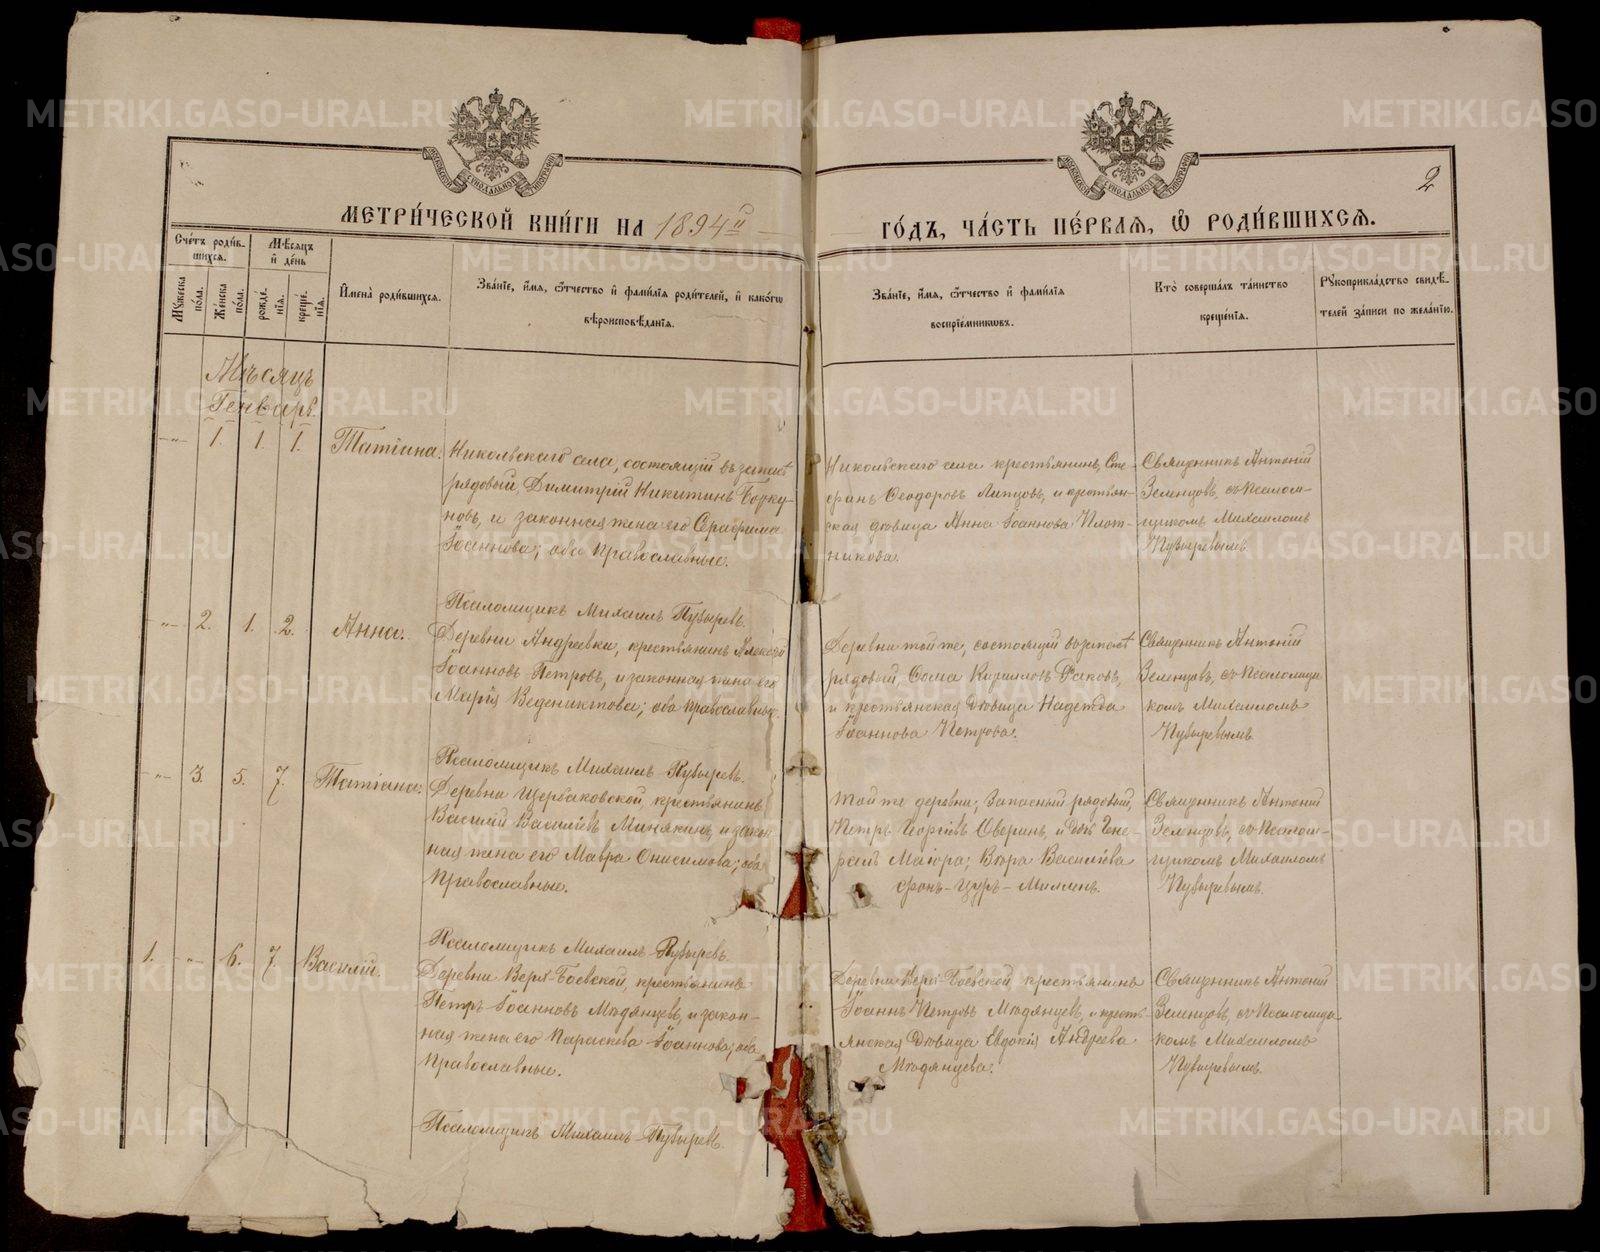 МЕТРИ́ЧЕСКОЙ КНИ́ГИ НА 1894й ГО́ДЪ, ЧА́СТЬ ПЕ́РВАЯ, Ѡ РОДИ́ВШИХСЯ.
2
Счетъ роди́вшихся.
Мꙋжеска по́ла.
Же́нска по́ла.
Мѣсяцъ и де́нь
рожде́нїя.
креще́нїя.
Имена̀ роди́вшихся.
Зва́нїе, и́мя, ѻ́тчество и фами́лїя роди́телей, и како́гѡ
вѣроисповѣ́данїя.
Зва́нїе, и́мя, ѻ́тчество и фами́лїя
воспрїе́мникѡвъ.
Кто̀ соверша́лъ та́инство
креще́нїя.
Рꙋкоприкла́дство свидѣ́-
телей за́писи по жела́нїю.
Мѣсяцъ
Генварь.
-"- 1. 1. 1. Татіана.
Никольскаго села, состоящій въ запасѣ
рядовый, Димитрій Никитинъ Борку-
новъ, и законная жена его Серафима
Іоаннова; оба православные.
Никольскаго села крестьянинъ, Сте-
фанъ Ѳеодоровъ Липцовъ, и крестьян-
ская дѣвица Анна Іоаннова Плот-
никова.
Священникъ Антоній
Зеленцовъ, съ Псалом-
щикомъ Михаиломъ
Пузыревымъ.
Псаломщикъ Михаилъ Пузыревъ.
-"- 2. 1. 2. Анна.
Деревни Андреевки, крестьянинъ Алексѣй
Іоанновъ Петровъ, и законная жена его
Марія Бедениктова; оба православные.
Деревни той же, состоящій въ запасѣ
рядовый, Ѳома Кириловъ Раковъ,
и крестьянская дѣвица Надежда
Іоаннова Петрова.
Священникъ Антоній
Зеленцовъ, съ Псаломщи
комъ Михаиломъ
Пузыревымъ.
Псаломщикъ Михаилъ Пузыревъ.
-"- 3. 5. 7. Татіана.
Деревни Щербаковской, крестьянинъ
Василій Василіевъ Минякинъ, и закон-
ная жена его Мавра Онисимова; оба
православные.
Той же деревни, Запасный рядовый,
Петръ Георгіевъ Оверинъ, и дочь Гене-
ралъ Маіора; Вѣра Василіева
фонъ-Цуръ-Миленъ.
Священникъ Антоній
Зеленцовъ, съ Псалом-
щикомъ Михаиломъ
Пузыревымъ.
Псаломщикъ Михаилъ Пузыревъ.
1. -"- 6. 7. Василій.
Деревни Верх-Боевской, крестьянинъ
Петръ Іоанновъ Медянцевъ, и закон-
ная жена его Параскева Іоаннова; оба
православные.
Деревни Верх-Боевской, крестьянинъ
Іоаннъ Петровъ Медянцевъ, и кресть-
янская дѣвица Евдокія Андреева
Медянцева.
Священникъ Антоній
Зеленцовъ, съ Псаломщи-
комъ Михаиломъ
Пузыревымъ.
Псаломщикъ Михаилъ Пузыревъ.
METRIKI.GASO-URAL.RU